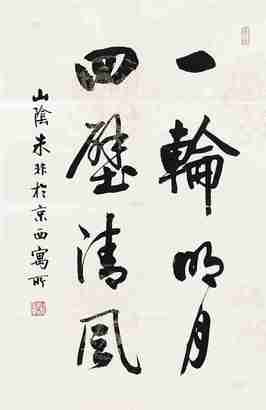 一輪明月
四壁清風
山陰未非於京西寓所